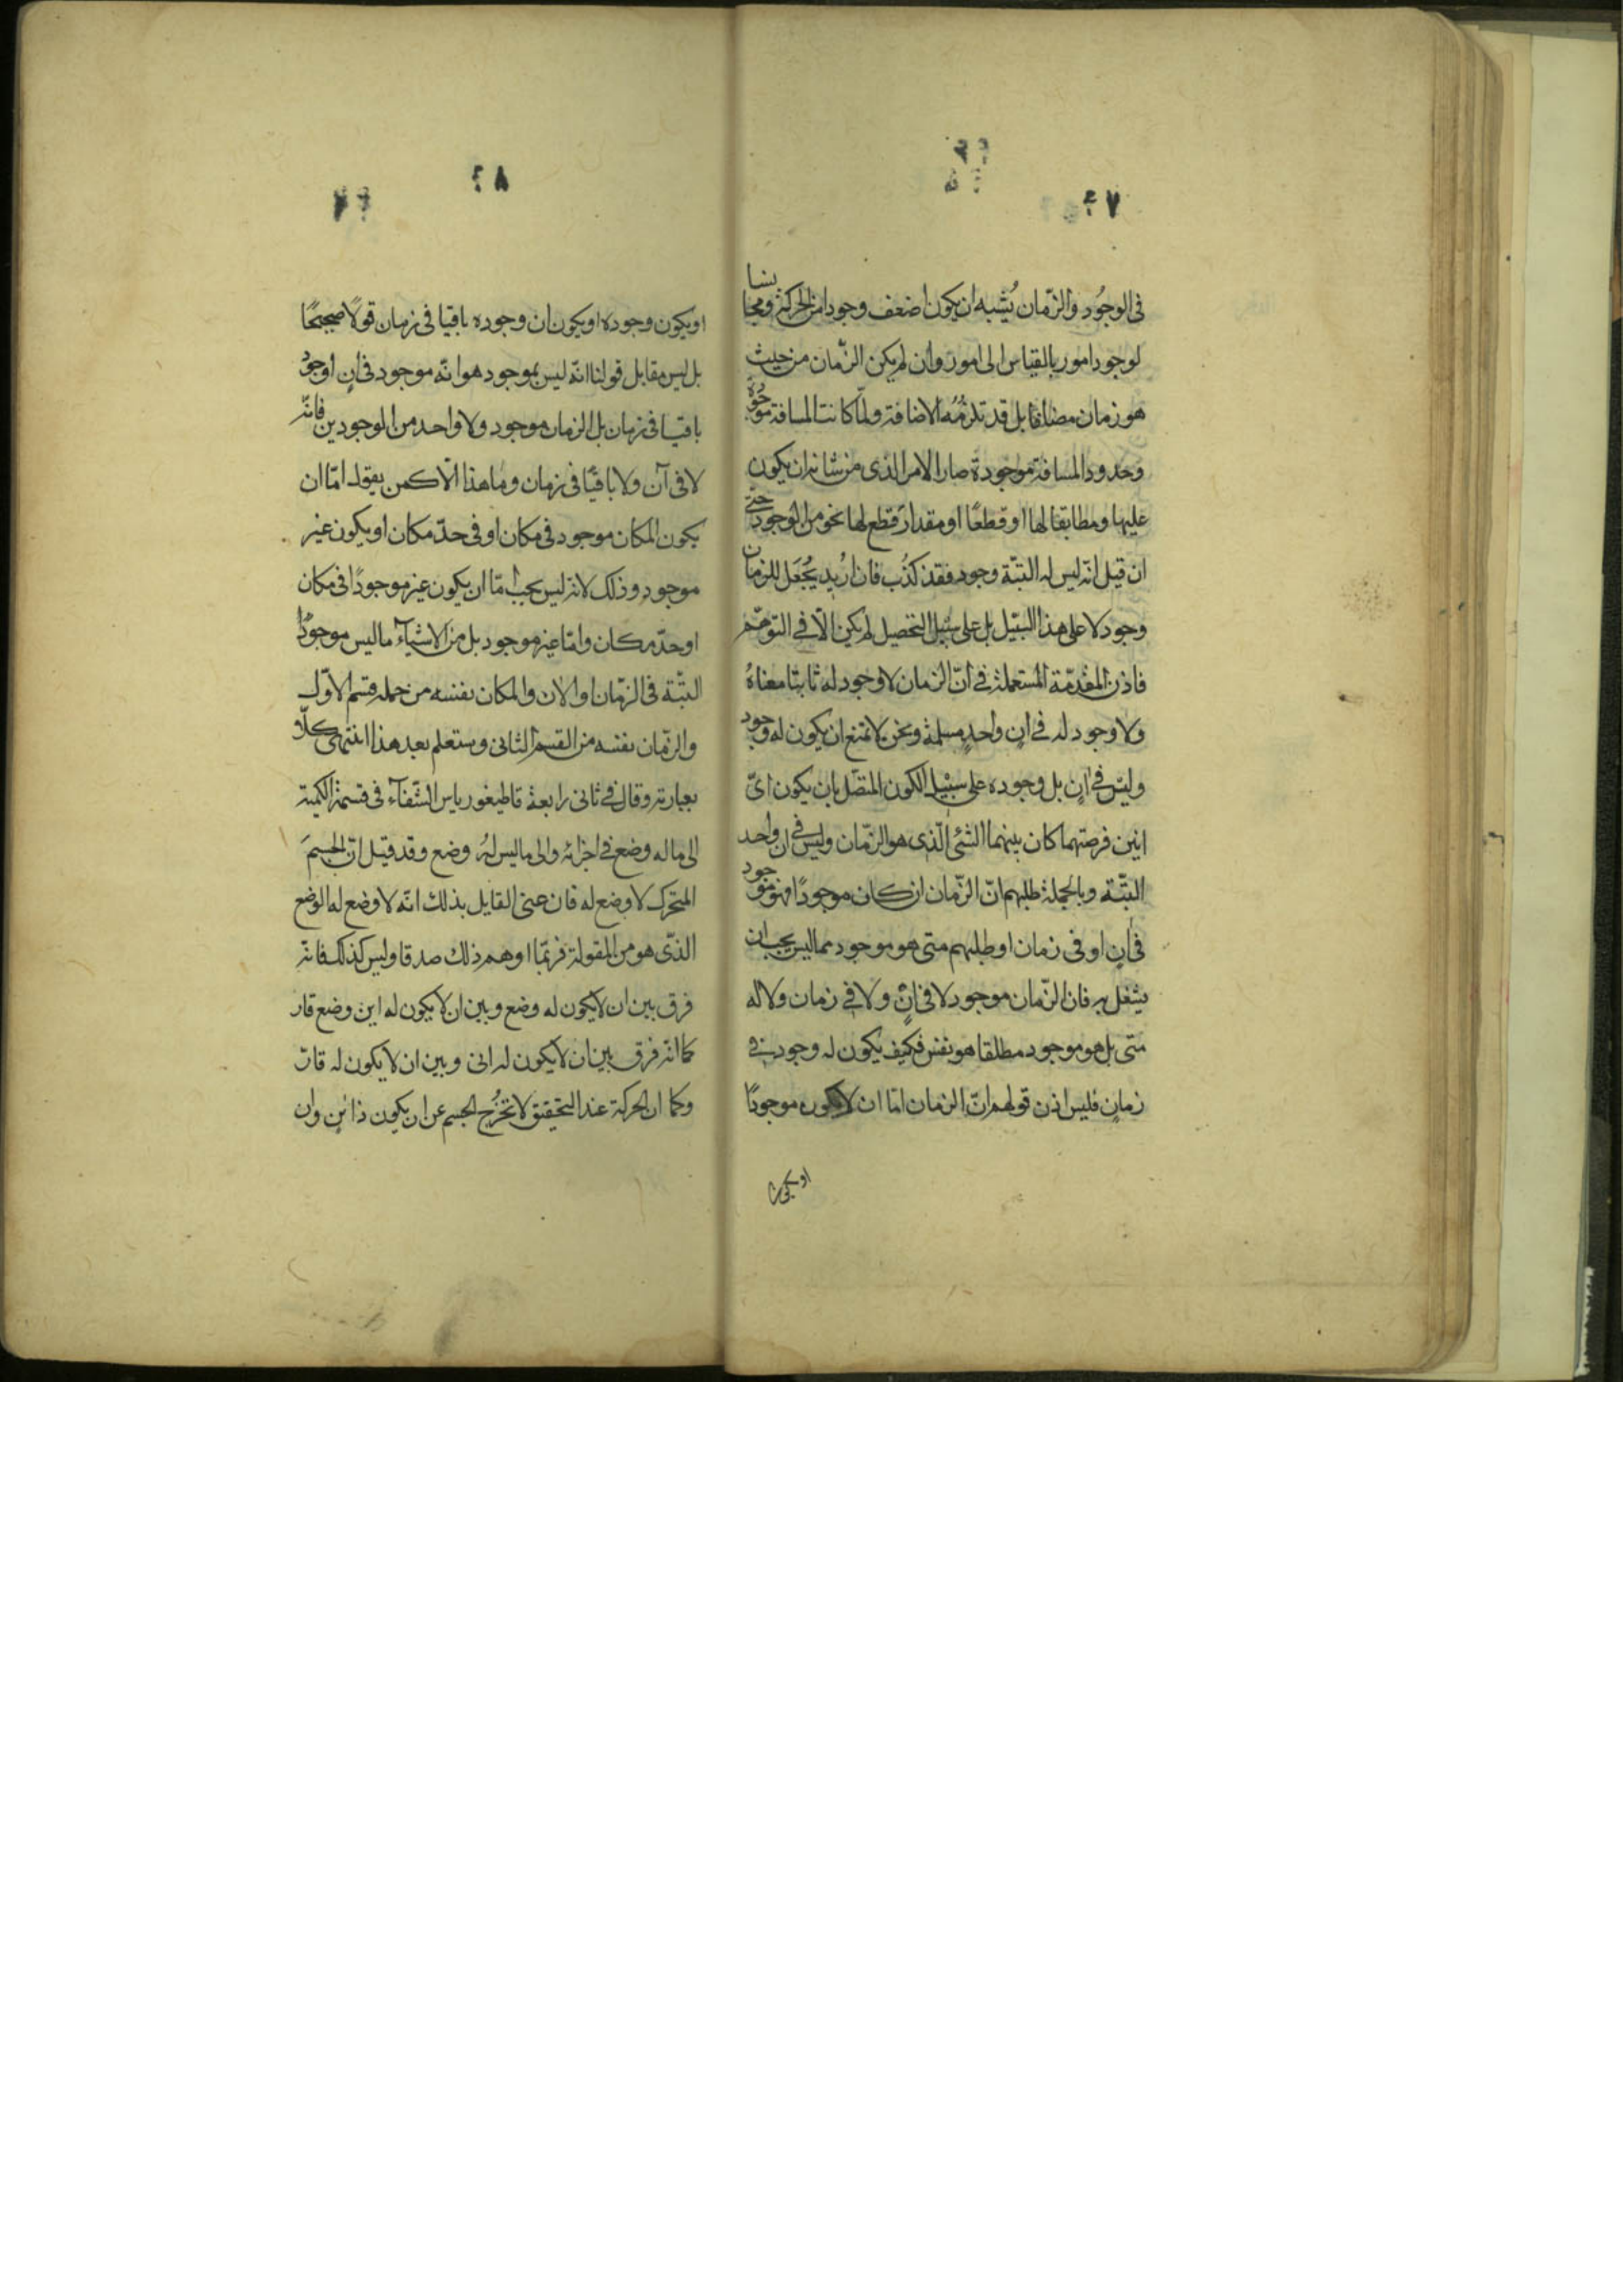 في الوجُود والزّمان يُشبه ان يكون اضعف وجودا من الحركة ومجانسا
لوجود امور بالقياس الى امور وان لم يكن الزّمان من حيث
هو زمان مضافا بل قد تلزمُه الاضافة ولمّا كانت المسافة موجودة
وحدود المسافة موجودة صار الامر الذى من شانه ان يكون
عليها ومطابقا لها او قطعًا او مقدار قطع لها نحو من الوجود حتّى
ان قيل انّه ليس له البتّة وجود فقد كذُب فان اُريد يُجعَل للزمان
وجود لا على هذا السبيل بل على سبيل التحصيل لم يكن الّا في التوهّم
فاذن المقدّمة المستعملة في انّ الزمان لا وجود له ثابتا معناهُ
ولا وجود له في انٍ واحدٍ مسلمة ونحن لا نمنع ان يكون له وجود
وليس في انٍ بل وجوده على سبيل الكون المتصّل بان يكون اىّ
انين فرضتهما كان بينهما الشئ الّذى هو الزّمان وليس في ان واحد
البتّة وبالجملة طلبهم انّ الزّمان ان كان موجودًا فهو موجود
في انٍ او فى زمان او طلبهم متى هو موجود مما ليس يجب ان
يشغل به فان الزّمان موجود لا في انٍ ولا في زمان ولا له
متى بل هو موجود مطلقا هو نفس فكيف يكون له وجود في
زمانٍ فليس اذن قولهم انّ الزمان امّا ان لا يكون موجودًا
او يكون
او يكون وجوده او يكون ان وجوده باقيا فى زمان قولًا صحيحًا
بل ليس مقابل قولنا انّه ليس بموجود هو انّه موجود فى انٍ او جودُ
باقيا فى زمان بل الزمان موجود ولا واحد من الوجودين فانّه
لا في آن ولا باقيًا فى زمان وما هذا الّا كمن يقول امّا ان
يكون المكان موجود فى مكان او فى حدّ مكان او يكون غير
موجود وذلك لانه ليس يجب امّا ان يكون غير موجودًا فى مكان
او حدّ مكان وامّا غير موجود بل من الاشياء ما ليس موجودًا
البتّة في الزّمان او الان والمكان بفنسه من جمله قسم الاوّل
والزّمان نفسه من القسم الثانى وستعلم بعد هذا انتهى كلامُه
بعبارته وقال في ثانى رابعة قاطيغورياس الشّفآء فى قسمة الكمية
الى ما له وضع في اجزائه والى ما ليس لهُ وضع وقد قيل انّ الجسمَ
المتحرّك لا وضع له فان عنى القايل بذلك انّه لا وضع له الوضع
الذّى هو من المقولة فربّما اوهم ذلك صدقا وليس كذلك فانّه
فرق بين ان لا يكون له وضع وبين ان لا يكون له اين وضع قار
كما انّه فرق بين ان لا يكون له اين وبين ان لا يكون له قارّ
وكما ان الحركة عند التحقيق لا تخرُج الجسم عن ان يكون ذا اينٍ وان